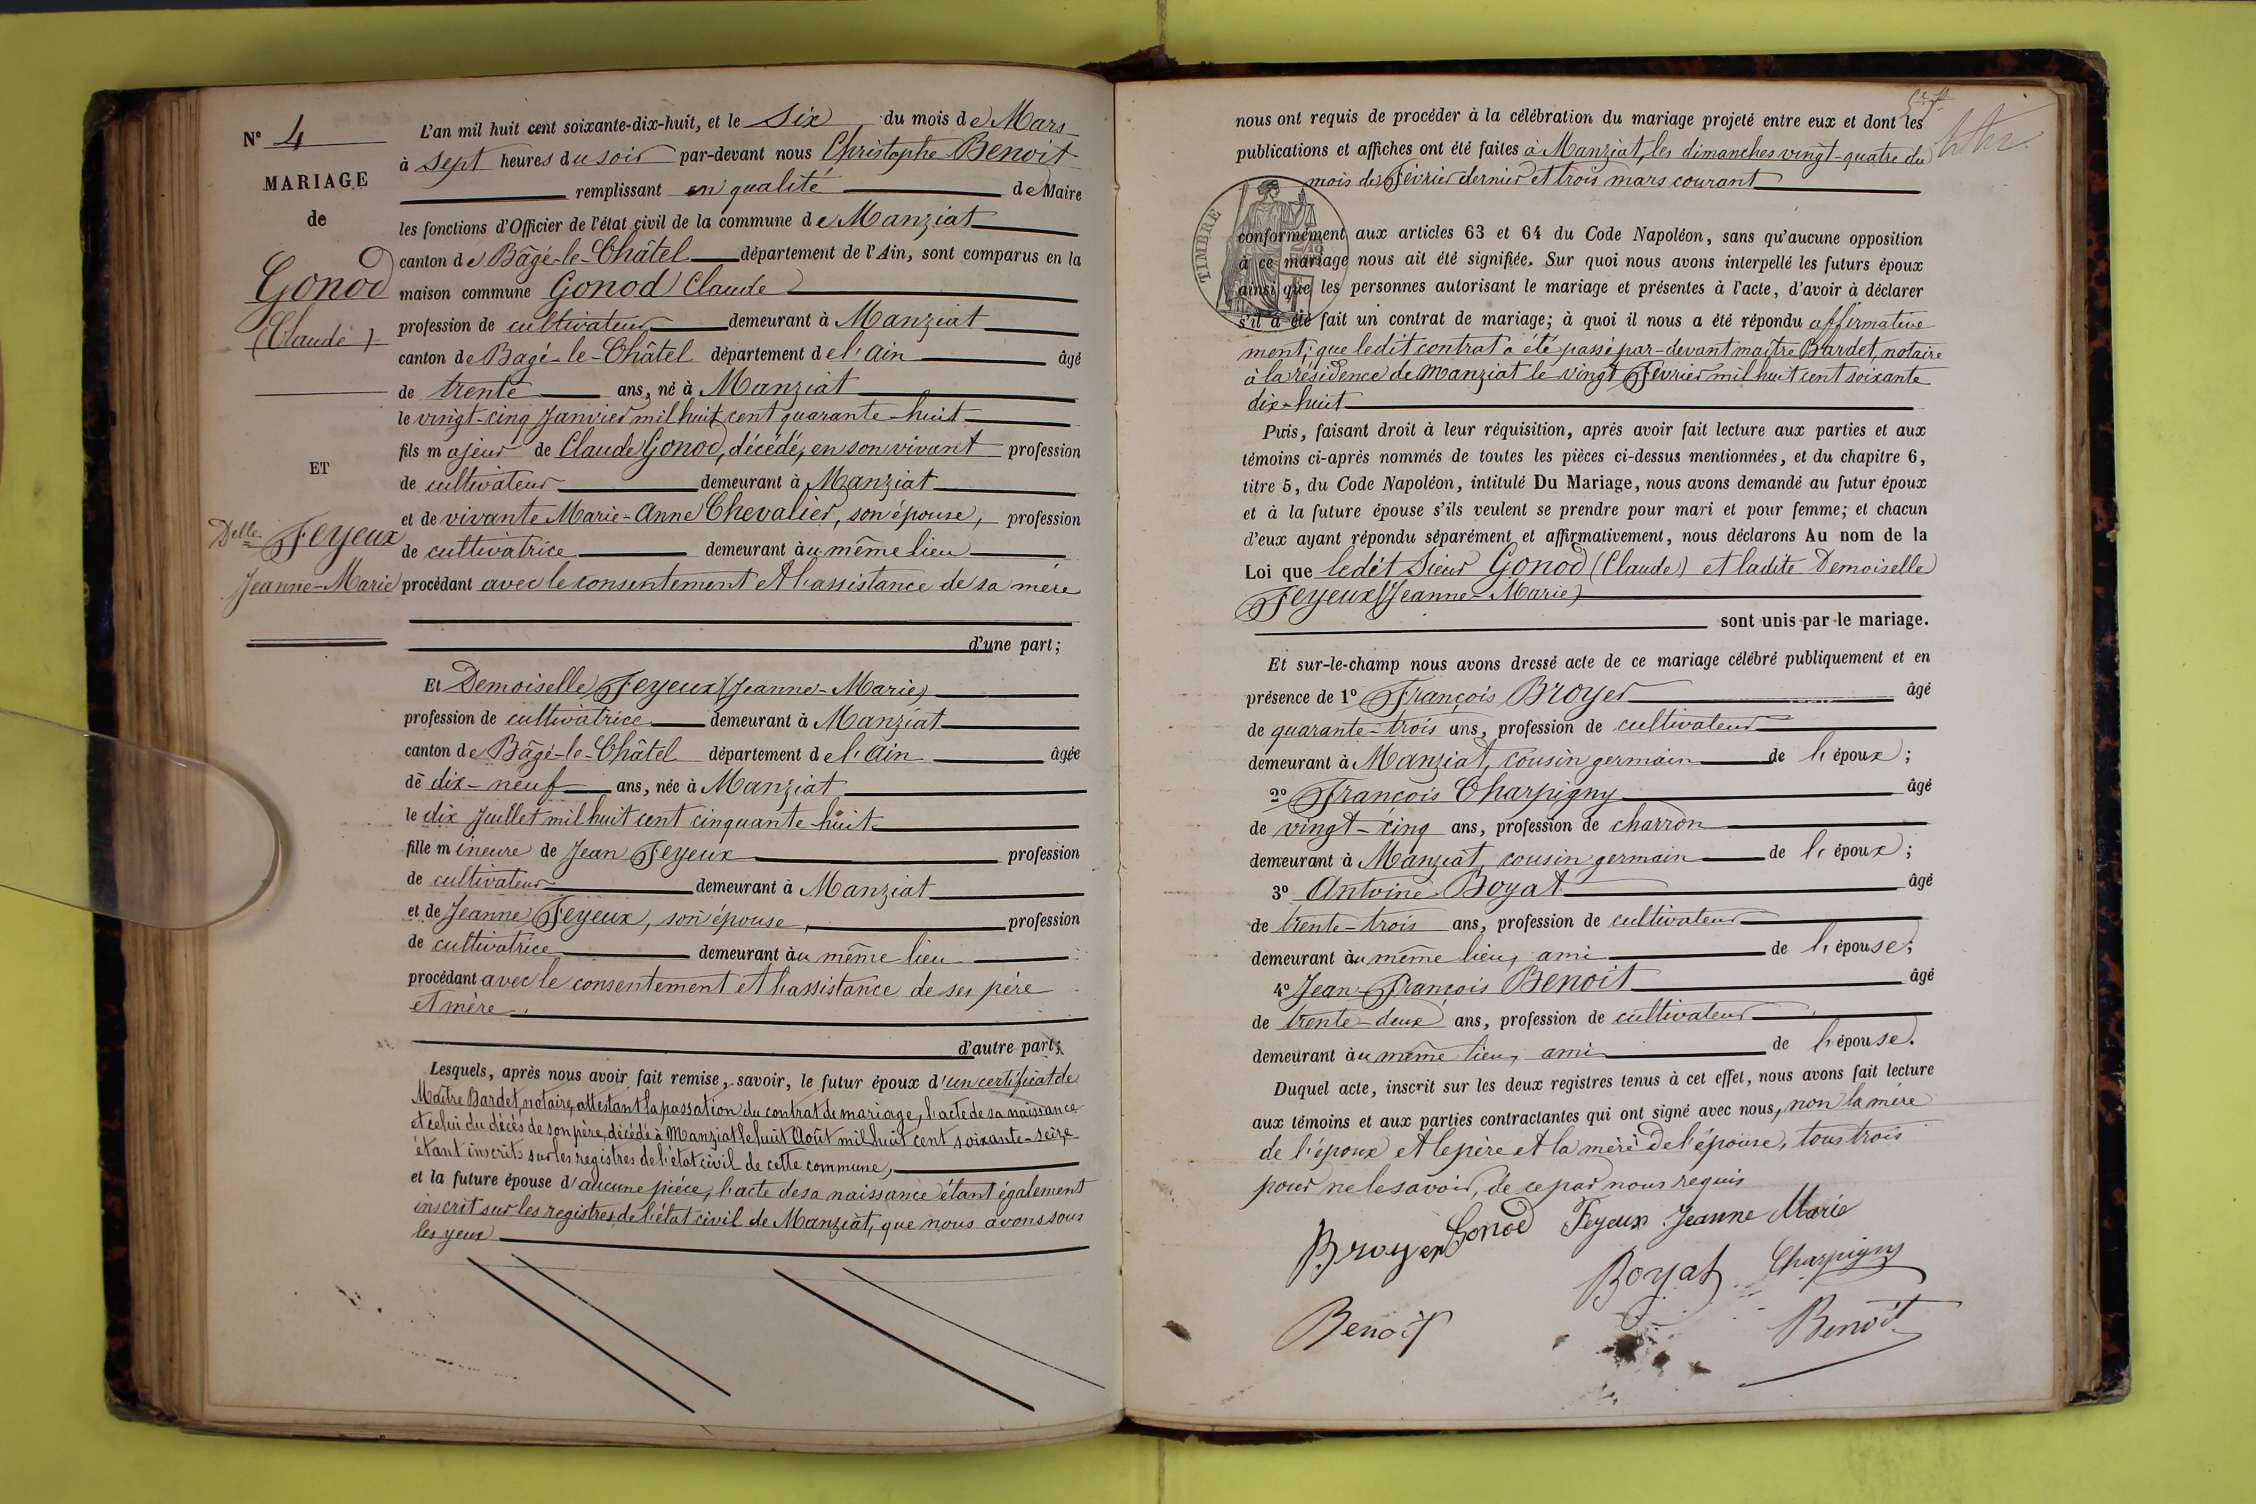 N° 4
MARIAGE
de
Gonod
(Claude)
ET
Delle Feyeux
Jeanne-Marie
L'an mil huit cent soixante-dix-huit, et le Six du mois de Mars
à sept heures du soir par-devant nous Christophe Benoit
remplissant en qualité de Maire
les fonctions d'Officier de l'état civil de la commune de Manziat
canton de Bâgé-le-Châtel département de l'Ain, sont comparus en la
maison commune Gonod Claude
profession de cultivateur demeurant à Manziat
canton de Bagé-le-Châtel département de l'Ain âgé
de trente ans, né à Manziat
le vingt-cinq Janvier mil huit cent quarante-huit
fils majeur de Claude Gonod, décédé, en son vivant profession
de cultivateur demeurant à Manziat
et de vivante Marie-Anne Chevalier, son épouse, profession
de cultivatrice demeurant au même lieu
procédant avec le consentement et l'assistance de sa mère
d'une part;
Et Demoiselle Feyeux (Jeanne-Marie)
profession de cultivatrice demeurant à Manziat
canton de Bâgé-le-Châtel département de l'Ain âgée
de dix-neuf ans, née à Manziat
le dix Juillet mil huit cent cinquante-huit
fille mineure de Jean Feyeux profession
de cultivateur demeurant à Manziat
et de Jeanne Feyeux, son épouse, profession
de cultivatrice demeurant au même lieu
procédant avec le consentement et l'assistance de ses père
et mère.
d'autre part;
Lesquels, après nous avoir fait remise, savoir, le futur époux d'un certificat de
Maître Bardet, notaire, attestant la passation du contrat de mariage, l'acte de sa naissance
et celui du décès de son père, décédé à Manziat le huit Août mil huit cent soixante-seize
étant inscrits sur les registres de l'état civil de cette commune,
et la future épouse d'aucune pièce, l'acte de sa naissance étant également
inscrit sur les registres de l'état civil de Manziat, que nous avons sous
les yeux
nous ont requis de procéder à la célébration du mariage projeté entre eux et dont les
publications et affiches ont été faites à Manziat, les dimanches vingt-quatre du
mois de Février dernier et trois mars courant
TIMBRE
conformément aux articles 63 et 64 du Code Napoléon, sans qu'aucune opposition
à ce mariage nous ait été signifiée. Sur quoi nous avons interpellé les futurs époux
ainsi que les personnes autorisant le mariage et présentes à l'acte, d'avoir à déclarer
s'il a été fait un contrat de mariage; à quoi il nous a été répondu affirmative
ment; que ledit contrat a été passé par-devant maître Bardet, notaire
à la résidence de Manziat le vingt Février mil huit cent soixante
dix-huit
Puis, faisant droit à leur réquisition, après avoir fait lecture aux parties et aux
témoins ci-après nommés de toutes les pièces ci-dessus mentionnées, et du chapitre 6,
titre 5, du Code Napoléon, intitulé Du Mariage, nous avons demandé au futur époux
et à la future épouse s'ils veulent se prendre pour mari et pour femme; et chacun
d'eux ayant répondu séparément et affirmativement, nous déclarons Au nom de la
Loi que ledit Sieur Gonod (Claude) et ladite Demoiselle
Feyeux (Jeanne-Marie)
sont unis par le mariage.
Et sur-le-champ nous avons dressé acte de ce mariage célébré publiquement et en
présence de 1° François Broyer âgé
de quarante-trois ans, profession de cultivateur
demeurant à Manziat, cousin germain de l'époux;
2° François Charpigny âgé
de vingt-cinq ans, profession de charron
demeurant à Manziat, cousin germain de l'époux;
3° Antoine Boyat âgé
de trente-trois ans, profession de cultivateur
demeurant au même lieu, ami de l'épouse;
4° Jean-François Benoit âgé
de trente-deux ans, profession de cultivateur
demeurant au même lieu, ami de l'épouse.
Duquel acte, inscrit sur les deux registres tenus à cet effet, nous avons fait lecture
aux témoins et aux parties contractantes qui ont signé avec nous, non la mère
de l'époux et le père et la mère de l'épouse, tous trois
pour ne le savoir, de ce par nous requis
Broyer Gonod Feyeux Jeanne Marie
Boyat Charpigny
Benoit Benoit